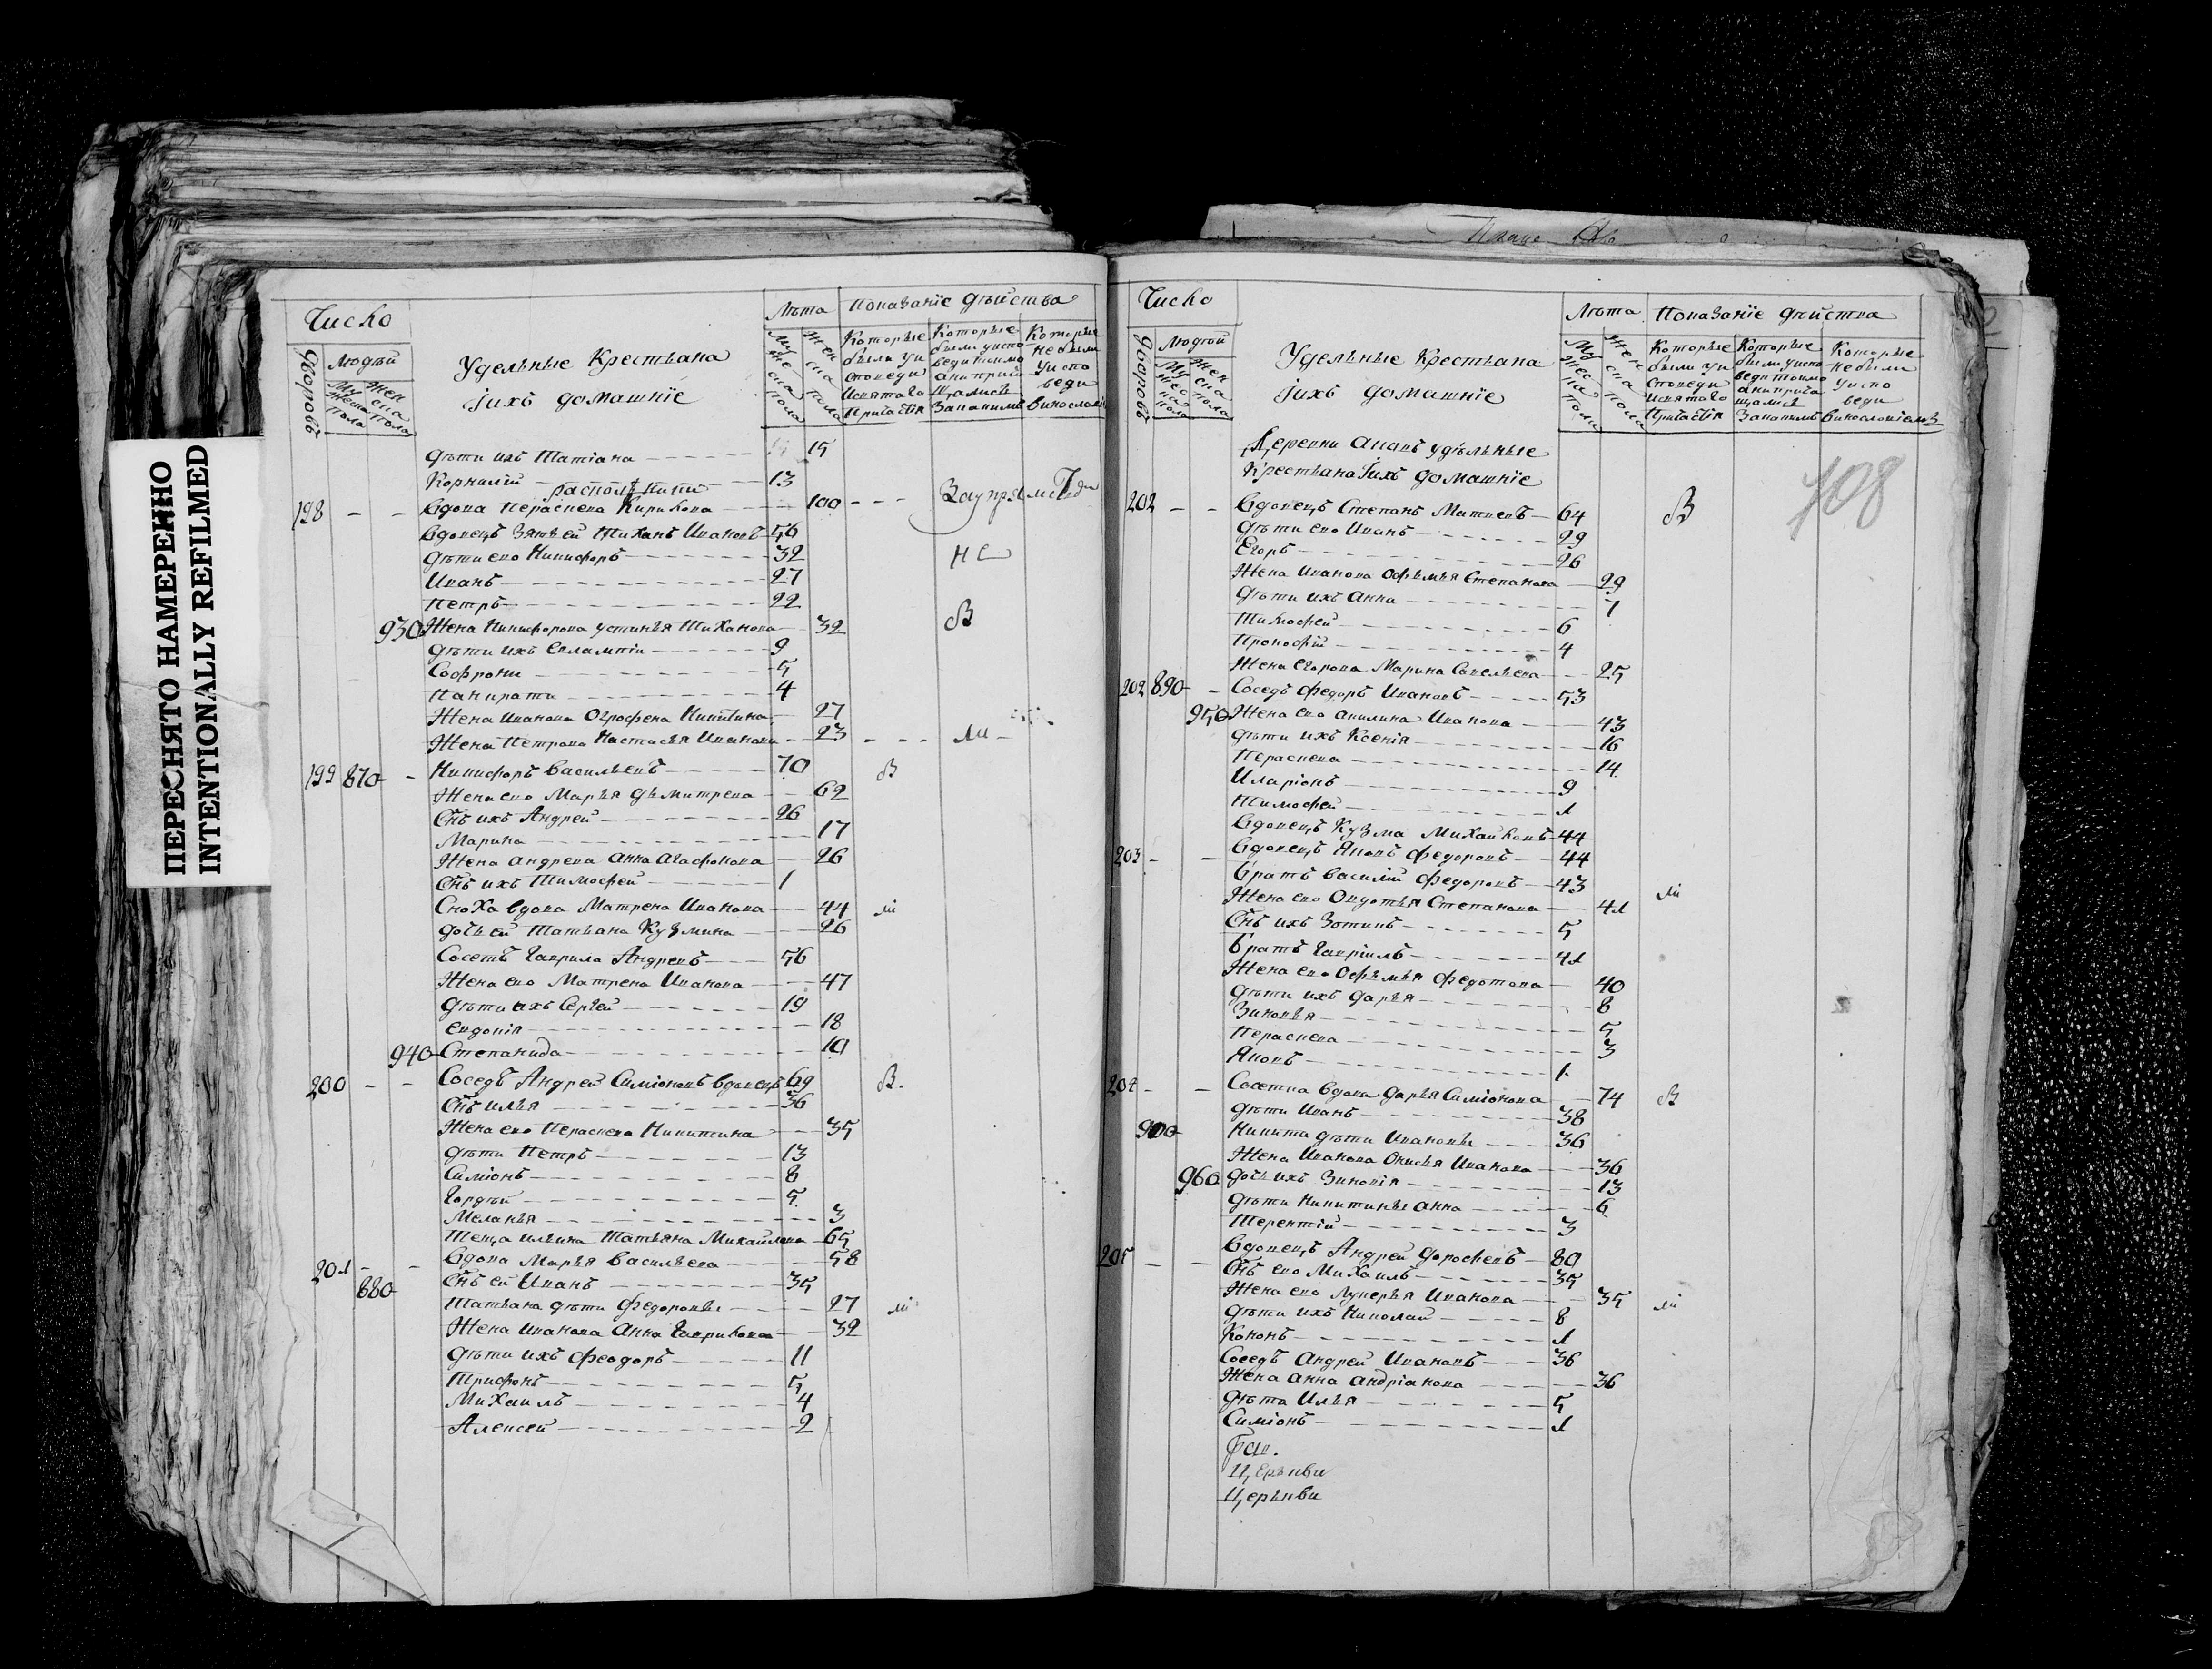 ПЕРЕСНЯТО НАМЕРЕННО
INTENTIONALLY REFILMED
Число
Лѣта Показанїе дѣйства
дворовъ Людѣй
Мужеска пола Женска пола
Удельные Крестьяна
іихъ домашнїе
Мужеска пола Женска пола
Которые были уисповеди исвятаго Причастїя
Которые были уисповеди токмо анипричащались
Которые небыли уисповеди
дѣти ихъ Татїана 15
Корнилїй 13
198 Вдова Пераскева Кирилова 100
Вдовецъ Зять ей Тиханъ Ивановъ 56
дѣти ево Никифоръ 32 не
Иванъ 27
Петръ 22
930 Жена Никифорова устинья Тиханова 32 В
дѣти ихъ Евлампїи 9
Софрони 5
Панкрати 4
Жена Иванова Ографена Никитина 27
Жена Петрова Настасья Иванова 23
199 870 Никифоръ Васильевъ 70 В
Жена ево Марья дьмитрева 62
Снъ ихъ Андрей 26
Марина 17
Жена андрева Анна Агафонова 26
Снъ ихъ Тимофей 1
Сноха вдова Матрена Иванова 44
дочь ей Татьана Кузмина 26
Сосетъ Гаврила Андревъ 56
Жена ево Матрена Иванова 47
дѣти ихъ Сергей 19
евдокїя 18
940 Степанида 10
200 Соседъ Андрей Симїоновъ вдовецъ 69 В.
Снъ илья 36
Жена ево Пераскева Никитина 35
дѣти Петръ 13
Симїонъ 8
Гордѣй 5
Меланья 3
Теща ильина Татьяна Михайлова 65
201 Вдова Марья Васильева 58
880 Снъ ей Иванъ 35
Татьана дѣти Федоровы 27
Жена Иванова Анна Гаврилова 32
дѣти ихъ Феодоръ 11
Трифонъ 5
Михаилъ 4
Алексей 2
Число
Лѣта Показанїе дѣйства
дворовъ Людѣй
Мужеска пола Женска пола
Удельные Крестьана
іихъ домашнїе
Мужеска пола Женска пола
Которые были уисповеди исвятаго Причастїя
Которые были уисповеди токмо анипричащались
Которые небыли уисповеди
108
удѣльные
Крестьана іихъ домашнїе
202 Вдовецъ Степанъ Матвевъ 64 В
дѣти ево Иванъ 29
Егоръ 26
Жена Иванова Офимья Степанова 29
дѣти ихъ Анна 7
Тимофей 6
Прокофїй 4
Жена Егорова Марина Савельева 25
202 890 Соседъ Федоръ Ивановъ 53
950 Жена ево акилина Иванова 43
дѣти ихъ Ксенїя 16
Пераскева 14
Иларїонъ 9
Тимофей 1
Вдовецъ Кузма Михайловъ 44
203 Вдовецъ Яковъ Федоровъ 44
братъ Василїй Федоровъ 43
Жена ево Овдотья Степанова 41
Снъ ихъ Зотикъ 5
братъ Гаврїилъ 41
Жена ево Офимья Федотова 40
дѣти ихъ дарья 8
Зиновья 5
Пераскева 3
Яковъ 1
204 Сосетка вдова дарья Симїонова 74 В
дѣти Иванъ 38
900 Никита дѣти Ивановы 36
Жена Иванова Онисья Иванова 36
960 дочь ихъ Зиновїя 13
дѣти Никитины анна 6
Терентїй 3
205 Вдовецъ Андрей дорофевъ 80
Снъ ево Михаилъ 35
Жена ево Лукерья Иванова 35
дѣти ихъ Николай 8
Кононъ 1
Соседъ Андрей Ивановъ 36
Жена анна андрїанова 36
дѣти Илья 5
Симїонъ 1
Церькви
Церькви